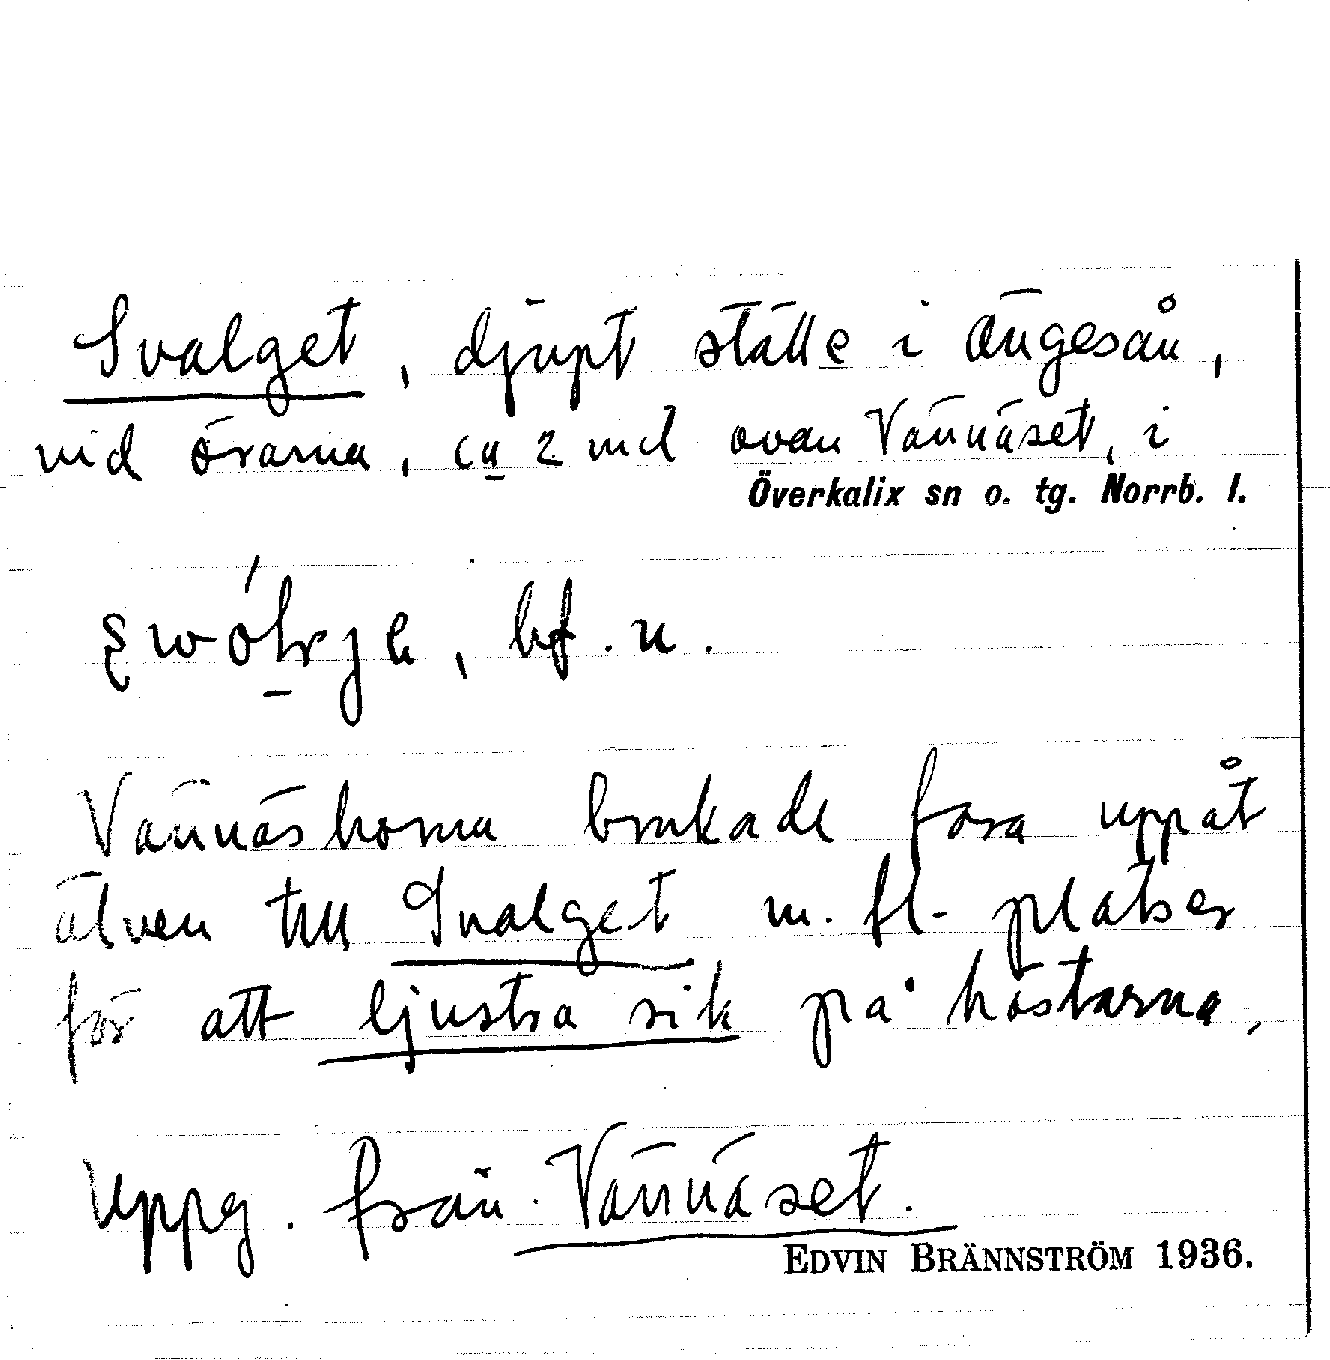 Svalget, djupt ställe i Ängesån,
vid örarna, ca 2 mil ovan Vännäset, i
Överkalix sn o. tg. Norrb. l.
bf. n.
Vännäsborna brukade fara uppåt
älven till Svalget m. fl. platser
för att ljustra sik på höstarna.
Uppg. från Vännäset.
EDVIN BRÄNNSTRÖM 1936.